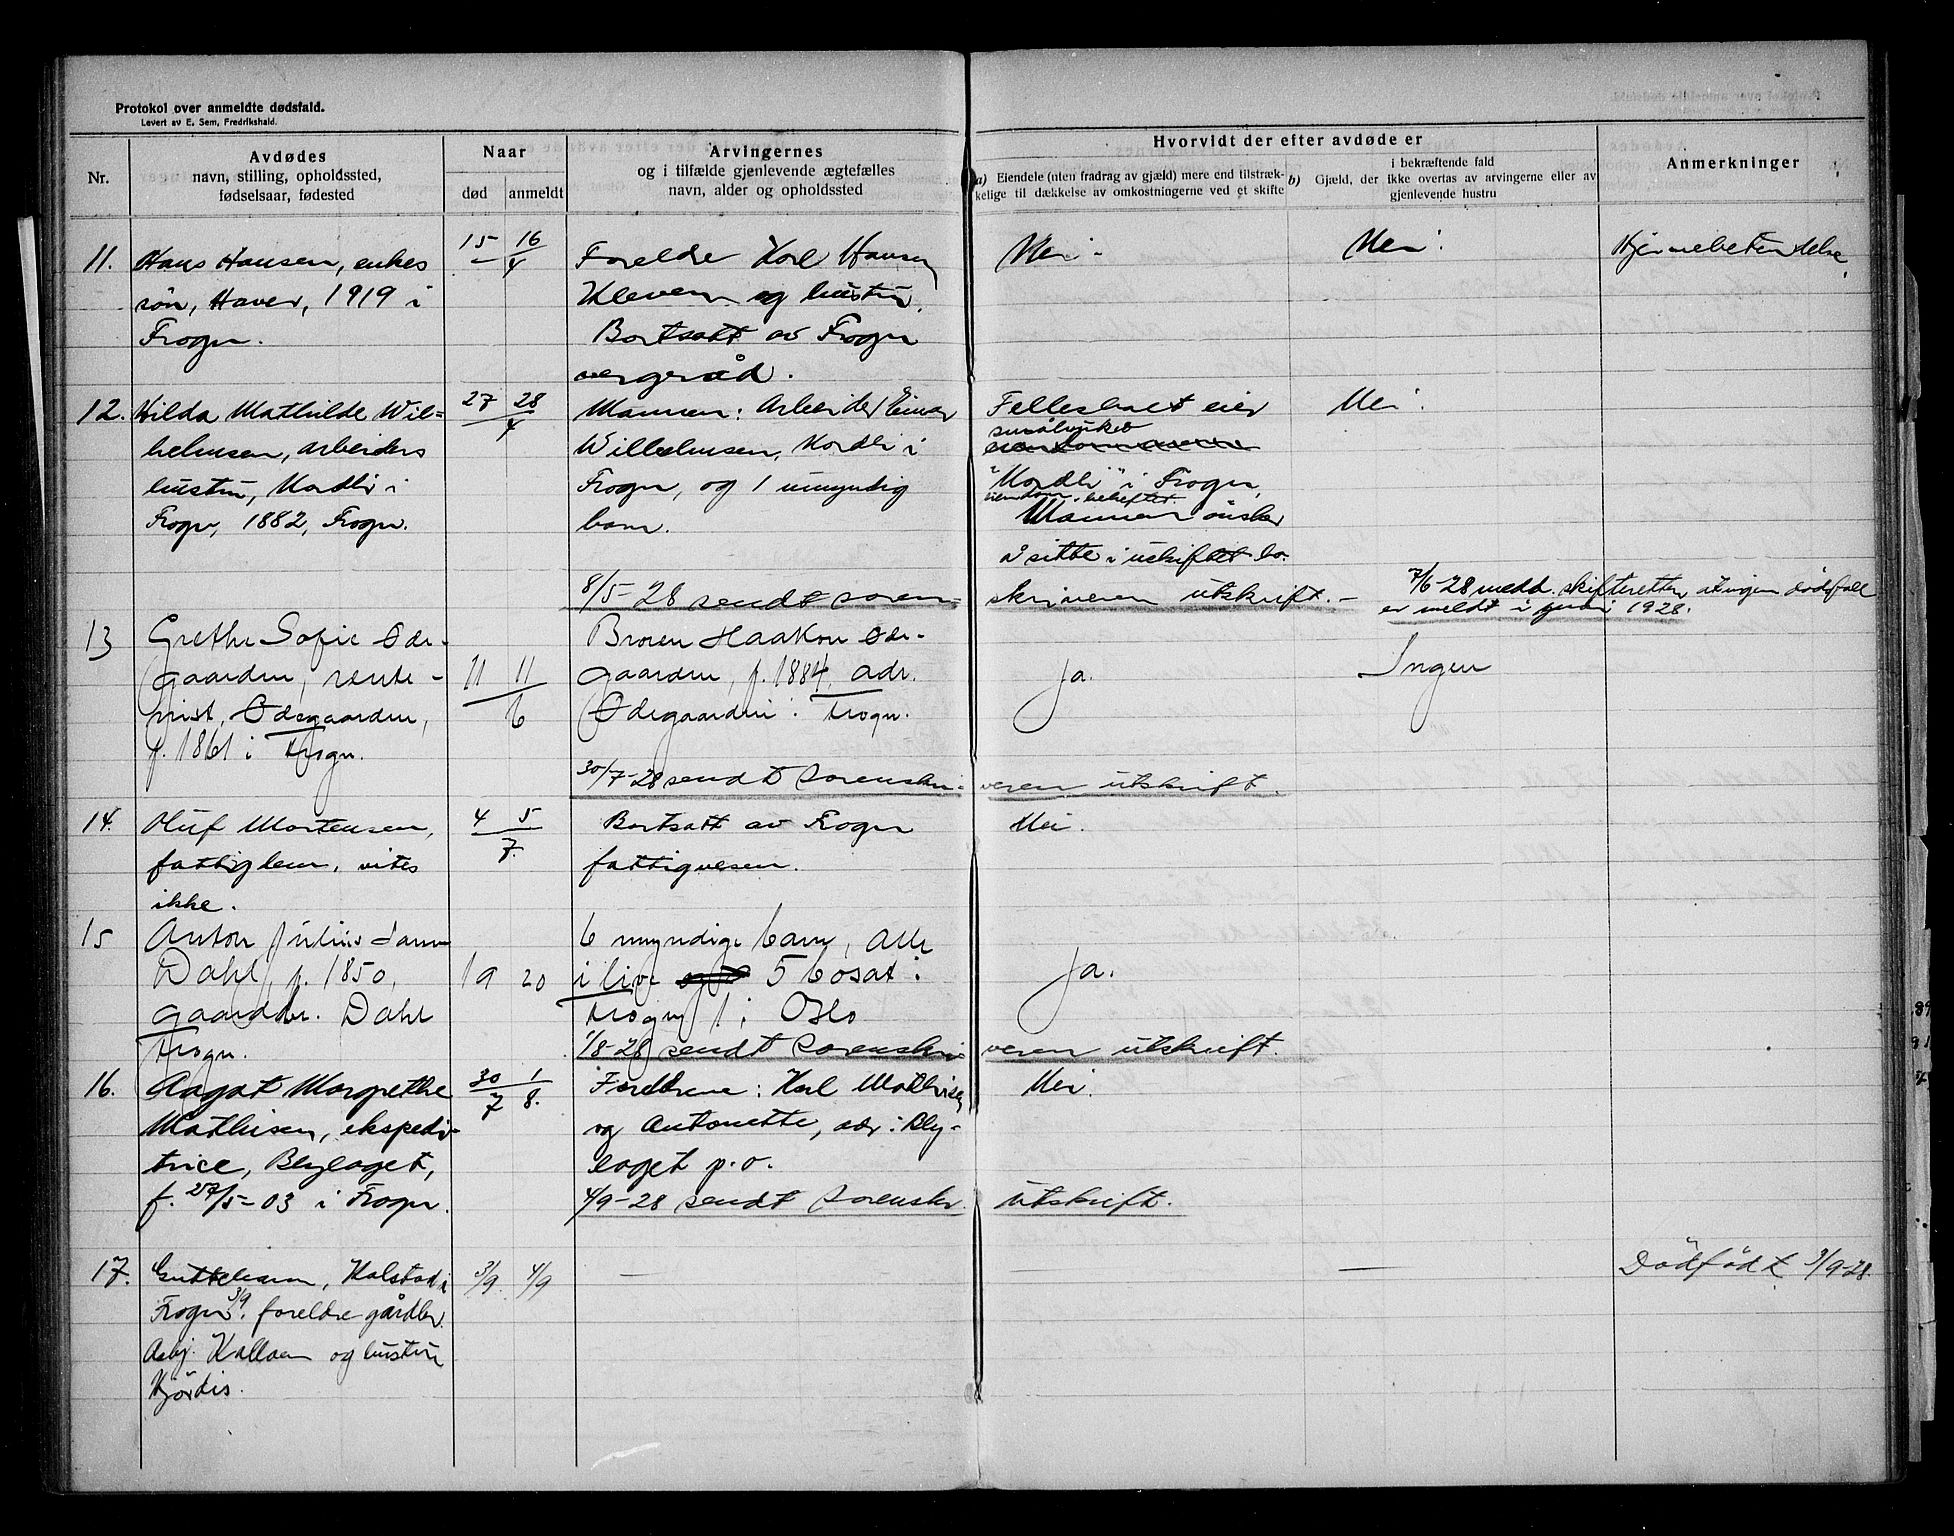 Protokol over anmeldte dødsfald.
Levert av E. Sem, Fredrikshald.
Nr.
Avdødes
navn, stilling, opholdssted,
fødselsaar, fødested
Naar
død anmeldt
Arvingernes
og i tilfælde gjenlevende ægtefælles
navn, alder og opholdssted
Hvorvidt der efter avdøde er
a) Eiendele (uten fradrag av gjæld) mere end tilstræk-
kelige til dækkelse av omkostningerne ved et skifte
b) Gjæld, der
i bekræftende fald
ikke overtas av arvingerne eller av
gjenlevende hustru
Anmerkninger
11. Hans Hansen, enkes
søn, Haver, 1919 i
Frogn.
15 16/4
Foreldre Karl Hansen
Kleven og hustru.
Bortsatt av Frogn
vergeråd.
Nei.
Nei.
Hjernebetendelse
12. Hilda Mathilde Wil-
helmsen, arbeiders
hustru, Nordli i
Frogn, 1882, Frogn.
27 28/4
Mannen: Arbeider Einar
Wilhelmsen, Nordli i
Frogn, og 1 umyndig
barn.
Fellesboet eier
småbruket
"Nordli" i Frogn,
eiendom. behefter.
Mannen ønsker
å sitte i uskiftet bo.
Nei.
8/5-28 sendt soren-
skriveren utskrift. -
7/6-28 medd. skifteretten at ingen dødsfall
er meldt i juni 1928.
13 Grethe Sofie Øde-
gaarden, rente-
nist, Ødegaarden,
f. 1861 i Frogn.
11 11/6
Broren Haakon Øde-
gaarden, f. 1884, adr.
Ødegaarden i Frogn.
Ja.
Ingen
30/7-28 sendt sorenskri-
veren utskrift.
14. Oluf Mortensen,
fattiglem, vites
ikke.
4 5/7.
Bortsatt av Frogn
fattigvesen.
Nei.
15 Anton Julius
Dahl, f. 1850,
gaardbr. Dahl
Frogn.
19 20
6 myndige barn, alle
i live 5 bosat i
Frogn 1 i Oslo
Ja.
1/8-28 sendt sorenskri
veren utskrift.
16. Aagot Margrethe
Mathisen, ekspedi-
trice, Blylaget,
f. 27/5-03 i Frogn.
30/7 1/8.
Foreldrene: Karl Mathisen
og Antonette, adr: Bly-
laget p.o.
Nei.
4/9-28 sendt sorenskr.
utskrift.
17. Guttebarn, Halstad i
Frogn 3/9. foreldre gårdbr.
Asbj. Kallaen og hustru
Hjørdis.
3/9. 4/9
—
—
—
Dødfødt 3/9-28.